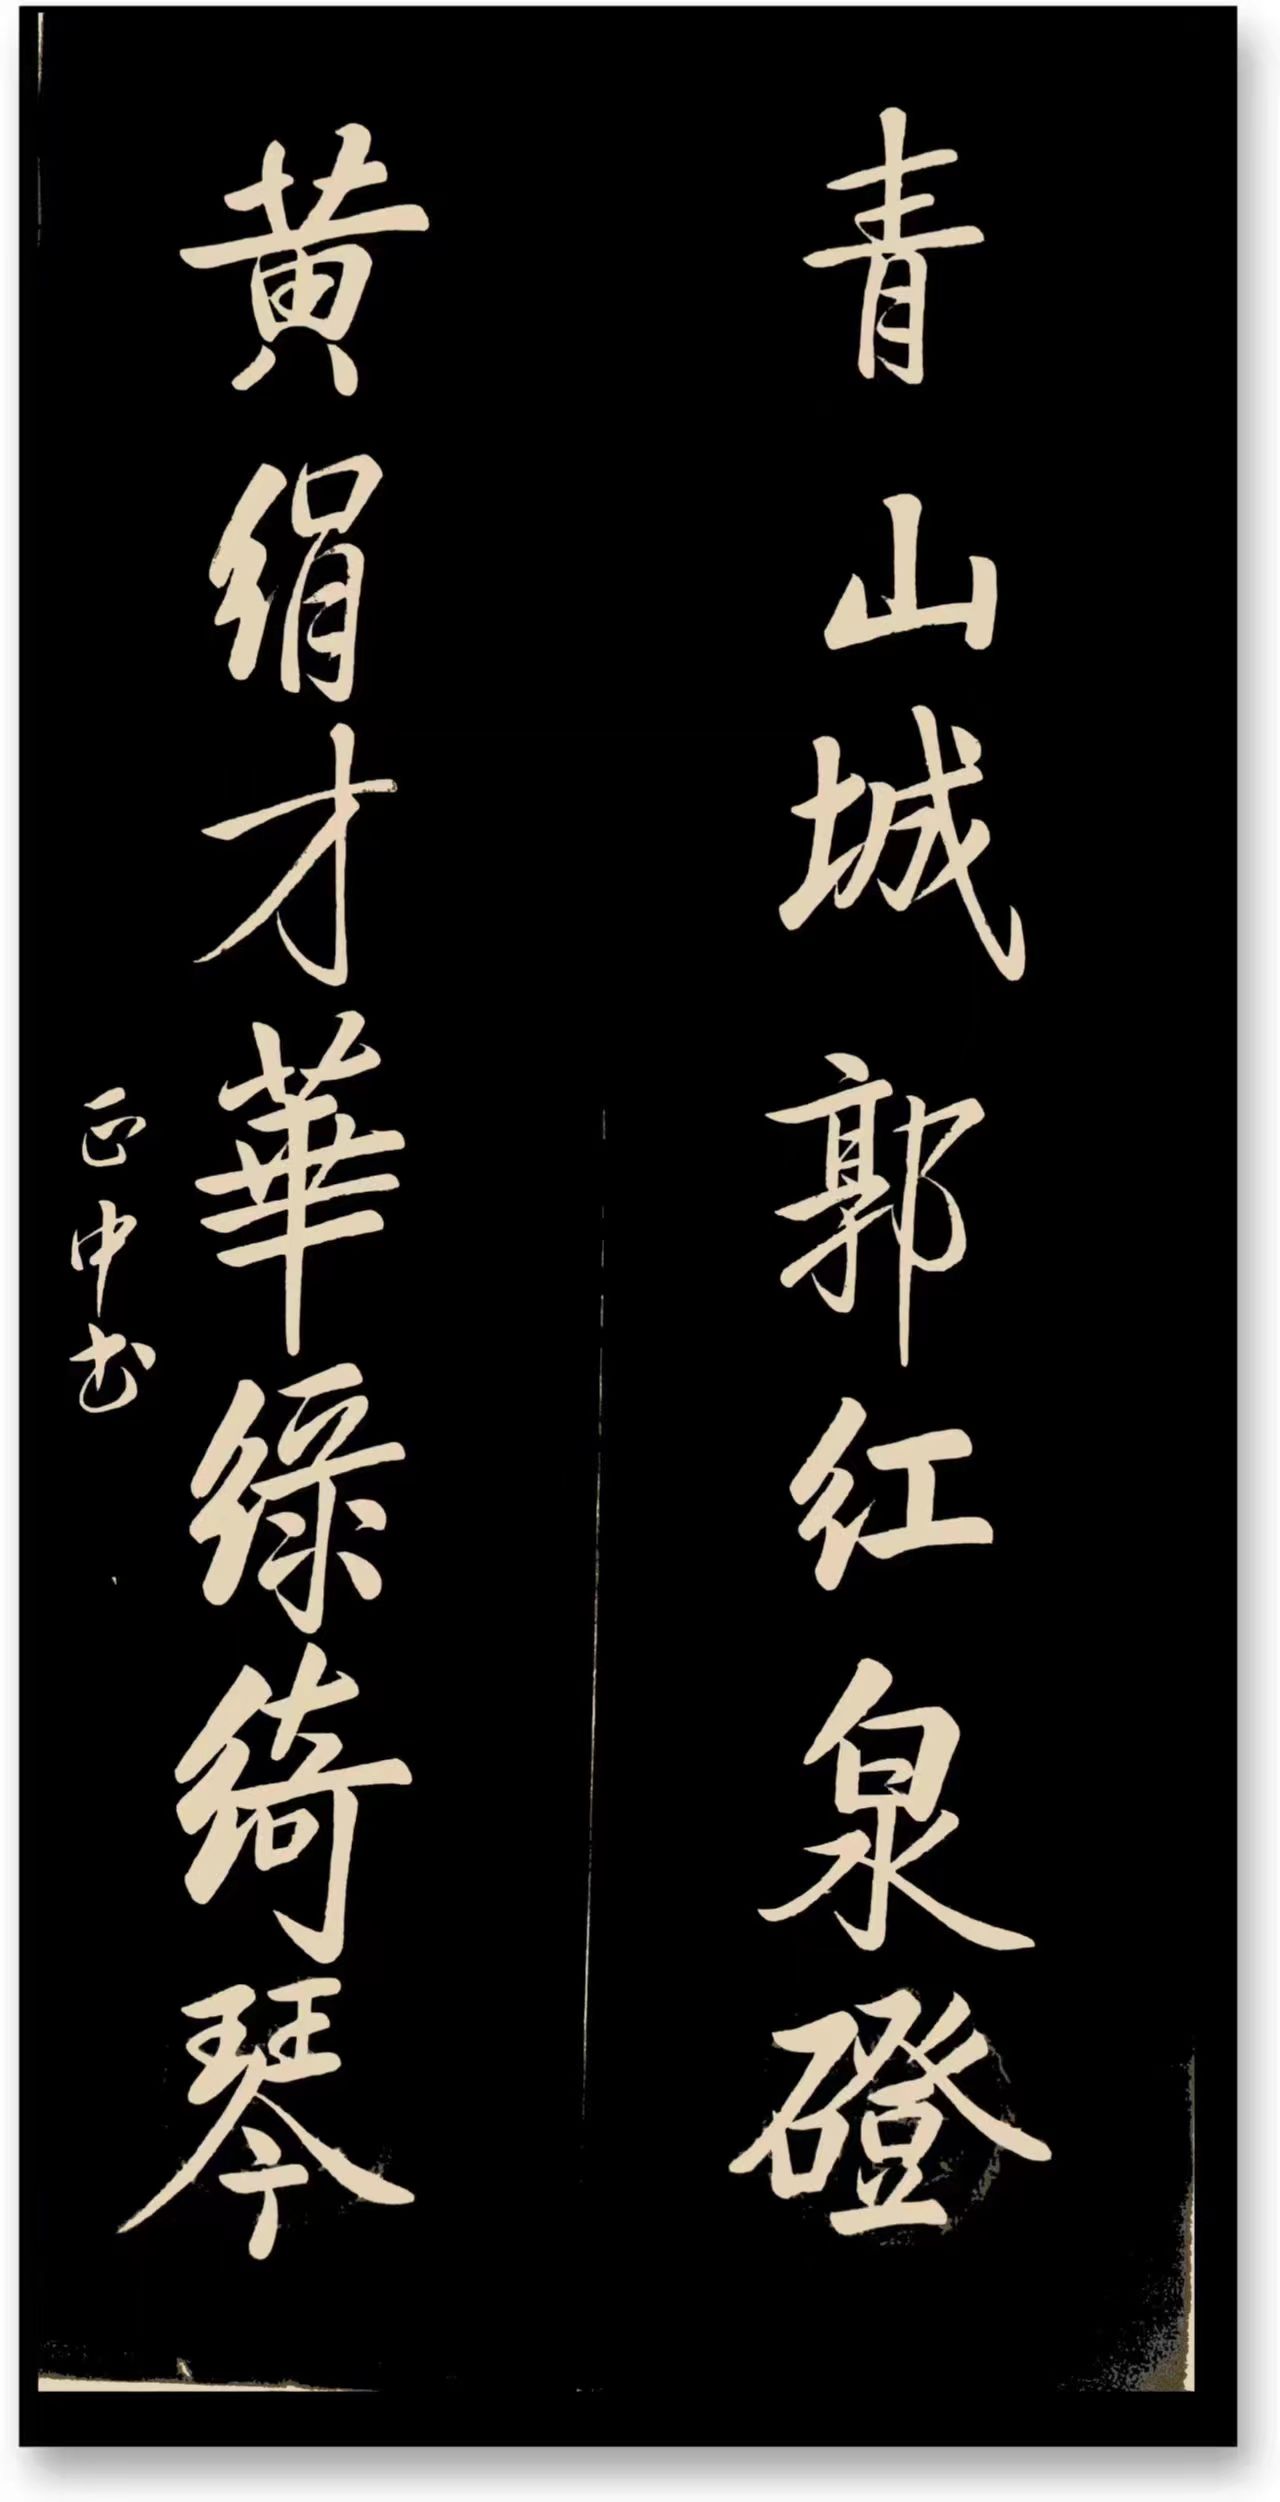 青山城郭红泉磴
黄绢才華綵绮琴
正中书